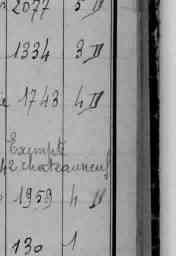 2077 5 D
1334 3 D
1743 4 D
Exempté
42 chateauneuf
1959 4 D
130 1